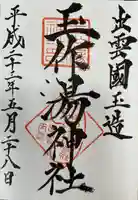 出雲國玉造
玉作湯神社
平成二十三年五月二十八日